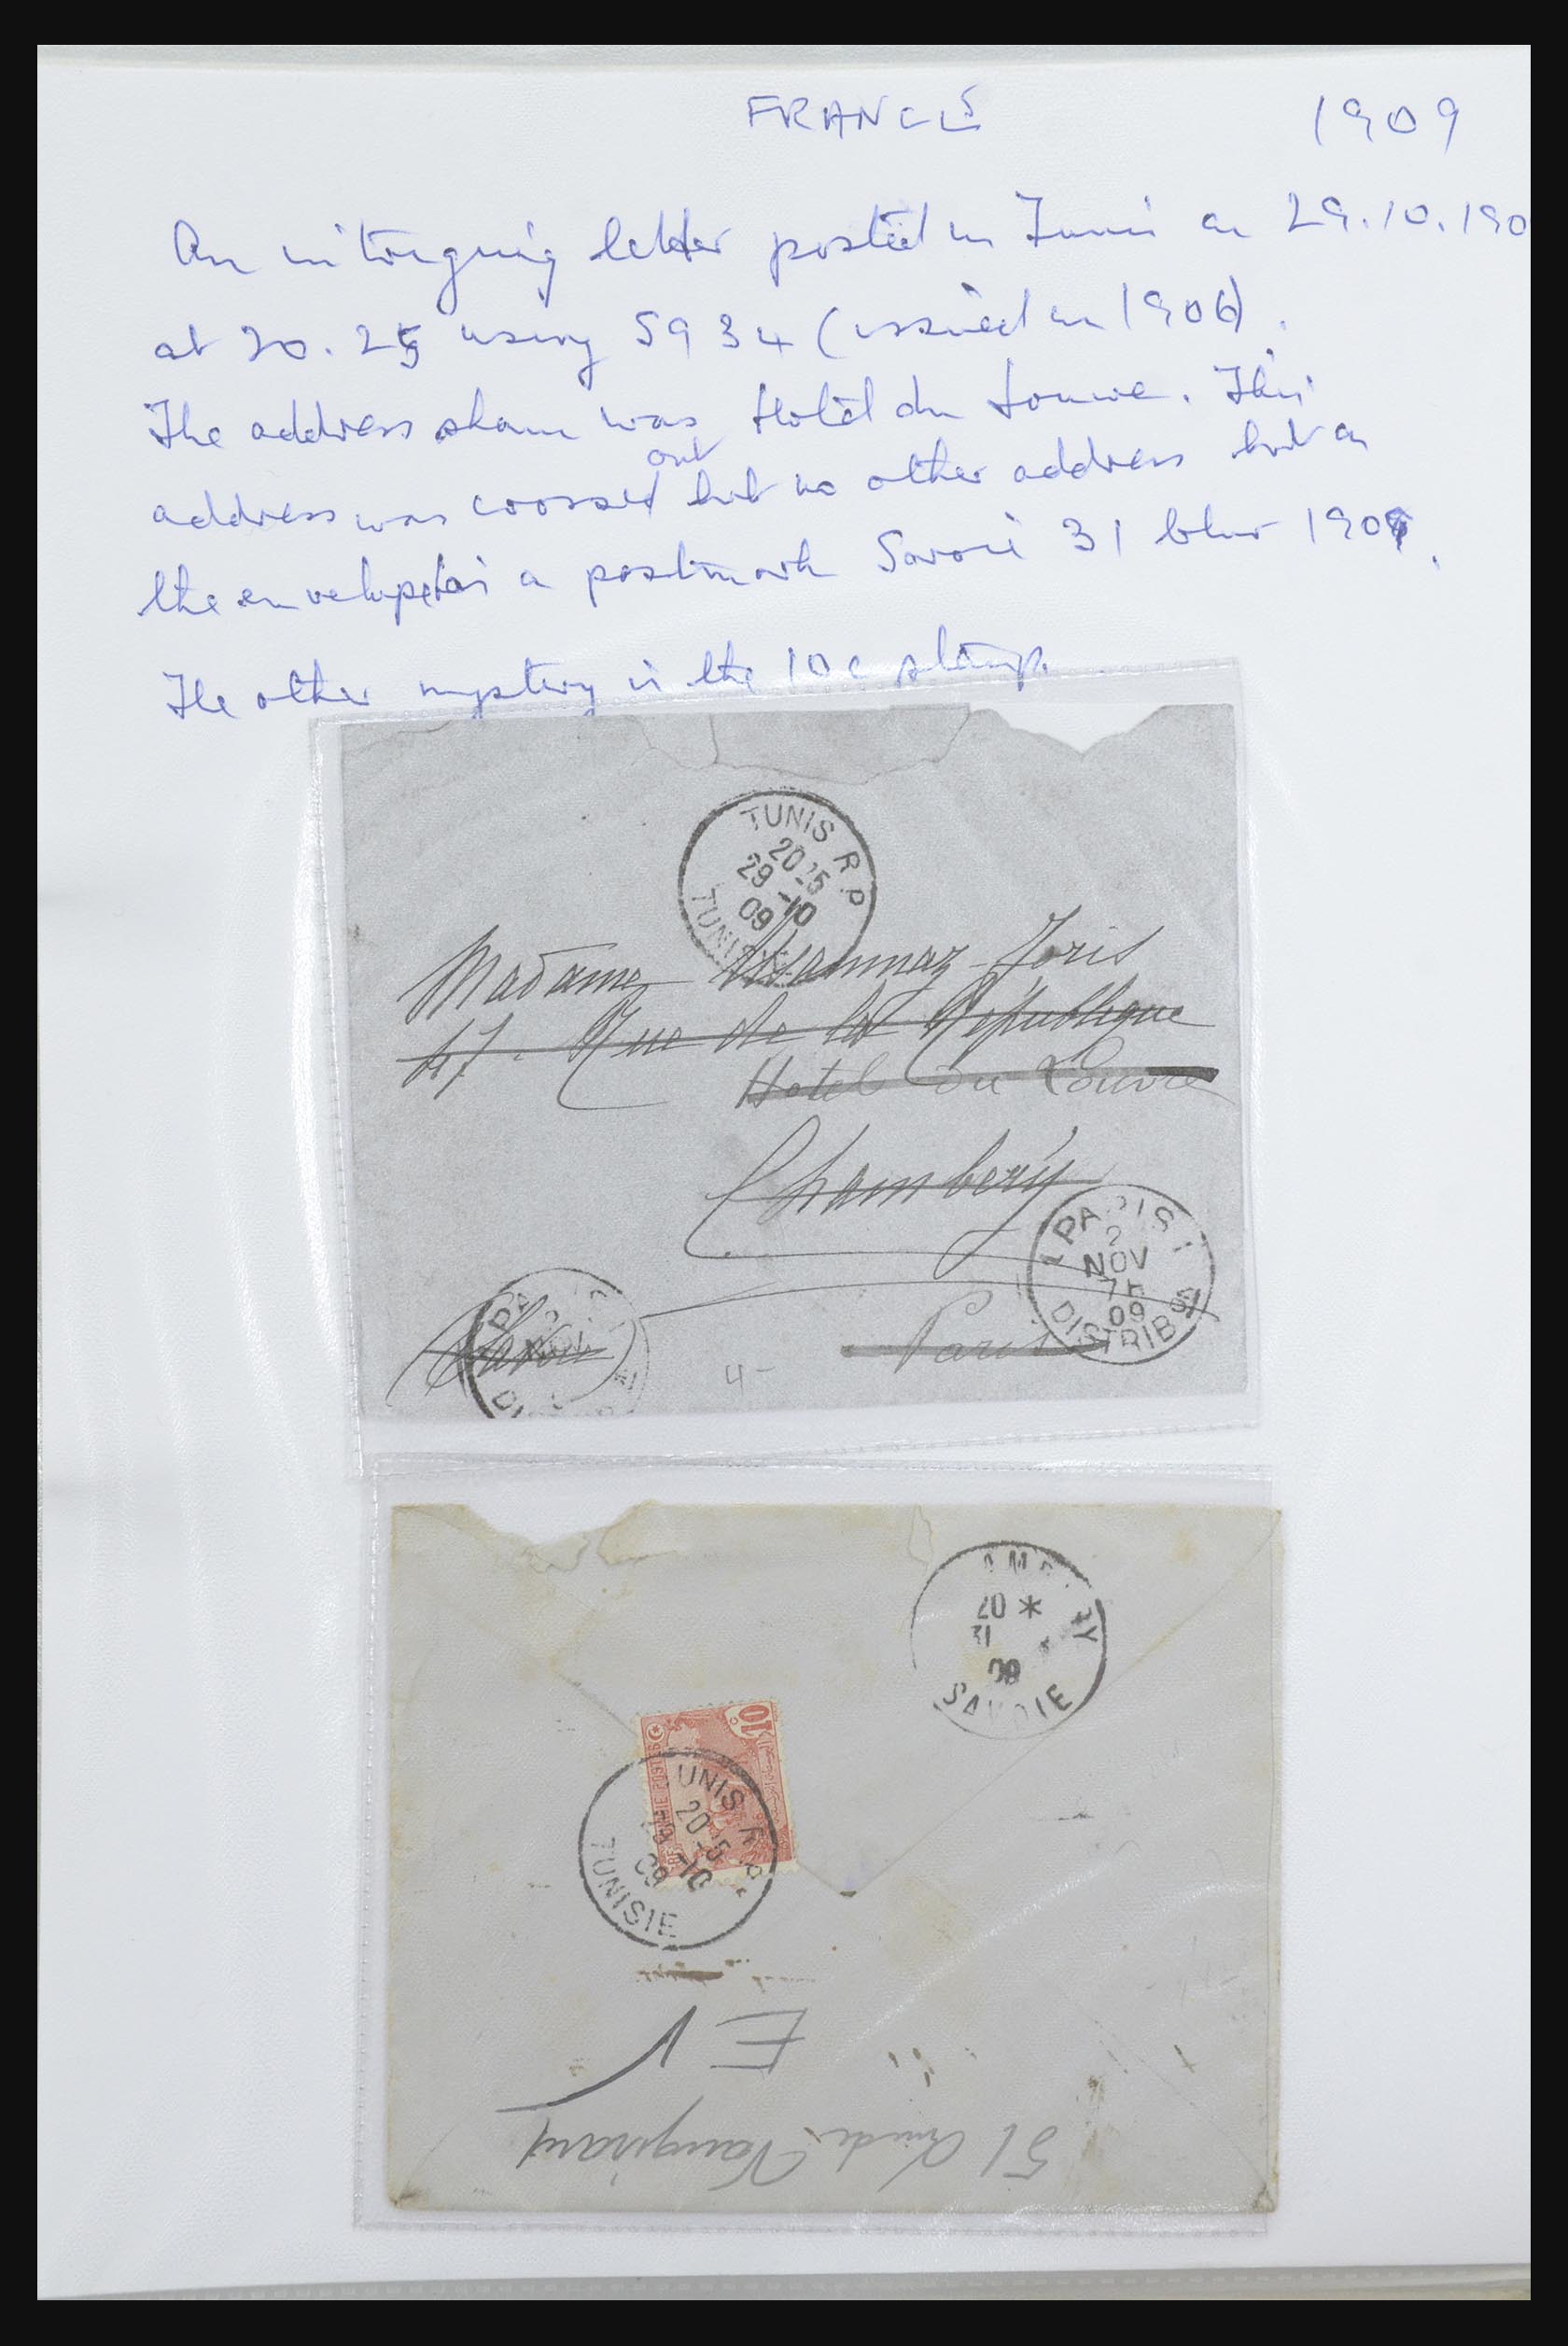 FRANCE 1909
An intriguing letter posted in Tunis on 29.10.190
at 20.25 using SG 34 (issued in 1906).
The address shown was Hotel du Louvre. This
address was crossed out but no other address but on
the envelope is a postmark Savoie 31 1909.
The other mystery is the 10c stamp.
TUNIS R P
20 25
29 -10
09
TUNISIE
Madame Joris
47. Rue de la République
Hotel du Louvre
Chambery
PARIS
2
NOV
7H
09
DISTRIB
Savoie
Paris
4-
AMB RY
20 *
31
09
SAVOIE
10
POSTES
TUNIS R P
20 25
10
09
TUNISIE
E V
51 Rue de Vaugirard